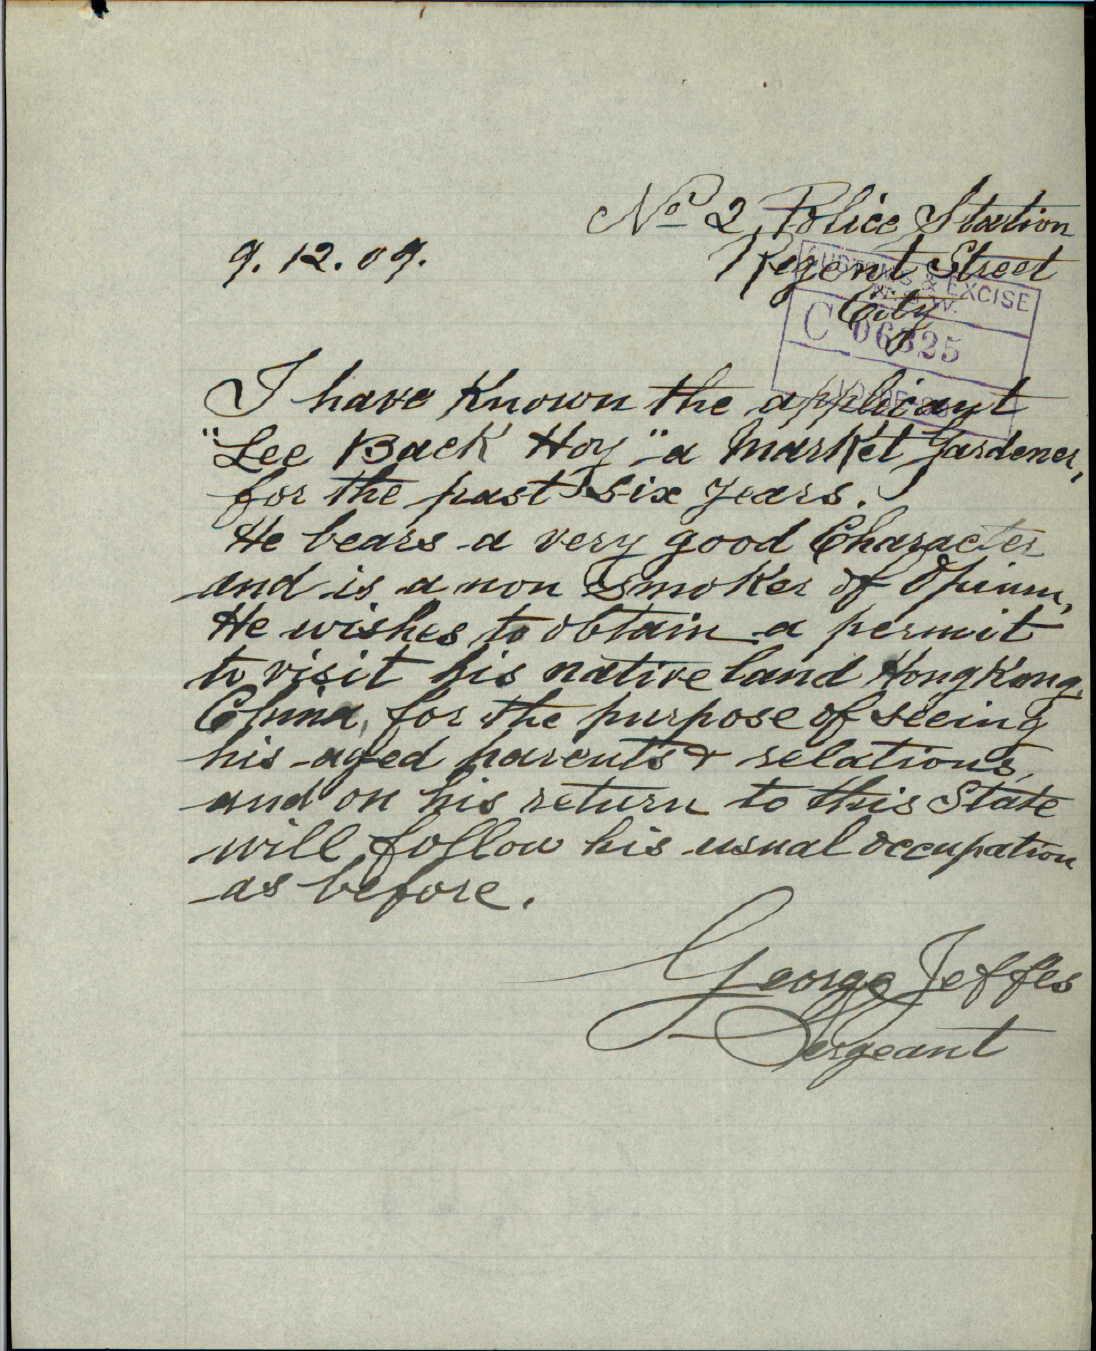 No 2 Police Station
9.12.09.
Regent Street
City
CUSTOMS & EXCISE
N.S.W.
C 06325
I have Known the applicant
"Lee Back Hoy" a Market Gardener,
for the past six years.
He bears a very good Character
and is a non Smoker of Opium,
He wishes to obtain a permit
to visit his native land Hong Kong,
China, for the purpose of seeing
his aged parents & relations,
and on his return to this State
will follow his usual occupation
as before.
George Jeffes
Sergeant